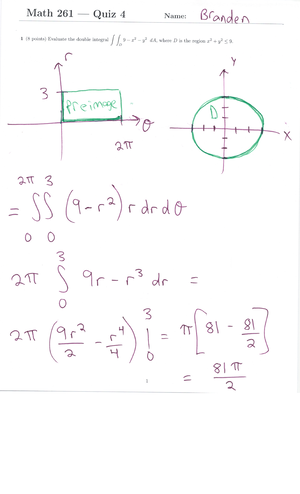 Math 261 — Quiz 4 Name: Branden
1 (8 points) Evaluate the double integral ∫∫_D 9 − x² − y² dA, where D is the region x² + y² ≤ 9.
r
y
3
Preimage
D
θ
x
2π
= ∫₀^2π ∫₀^3 (9 − r²) r dr dθ
2π ∫₀^3 9r − r³ dr =
2π (9r²/2 − r⁴/4) |₀^3 = π [81 − 81/2]
= 81π/2
1